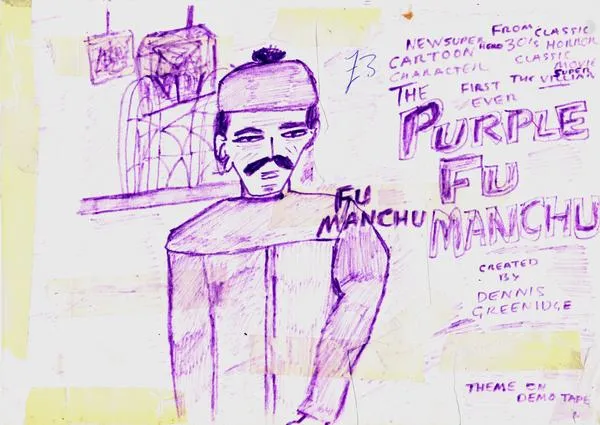 FROM CLASSIC
NEW SUPER HERO 30'S HORROR
CARTOON CLASSIC
CHARACTER MOVIE
SUPER
THE FIRST THE VILLIAN
EVER
PURPLE
FU
MANCHU
73
FU
MANCHU
CREATED
BY
DENNIS
GREENIDGE
THEME ON
DEMO TAPE